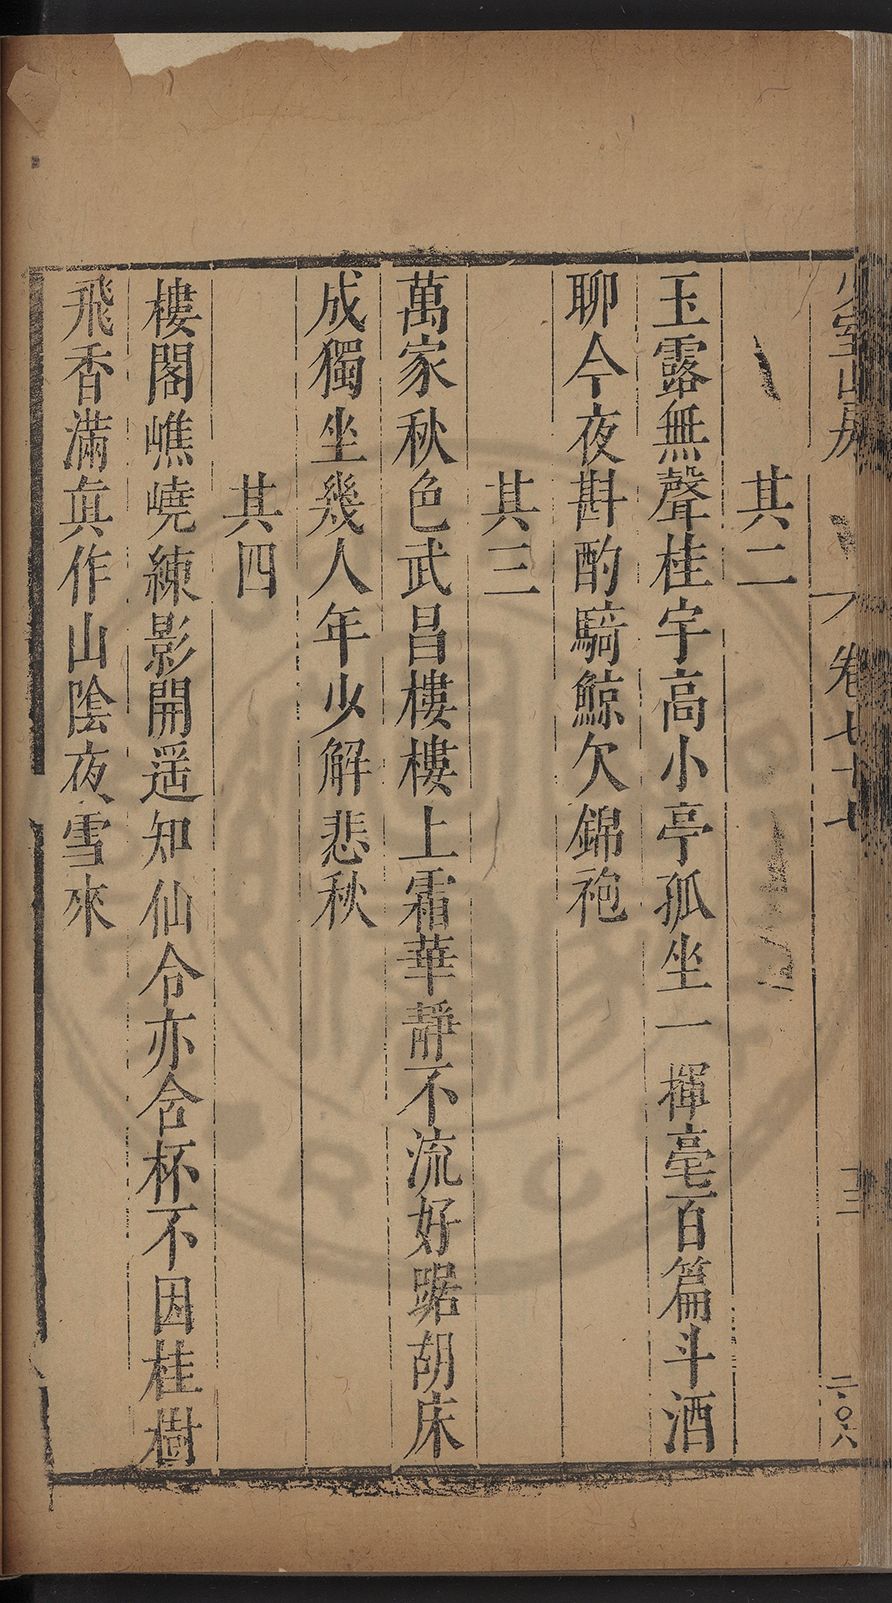 少室山房
卷七十七
十三
二〇八
其二
玉露無聲桂宇高小亭孤坐一揮毫百篇斗酒
聊今夜斟酌騎鯨欠錦袍
其三
萬家秋色武昌樓樓上霜華靜不流好踞胡床
成獨坐幾人年少解悲秋
其四
樓閣嶕嶢練影開遥知仙令亦含杯不因桂樹
飛香滿真作山陰夜雪來